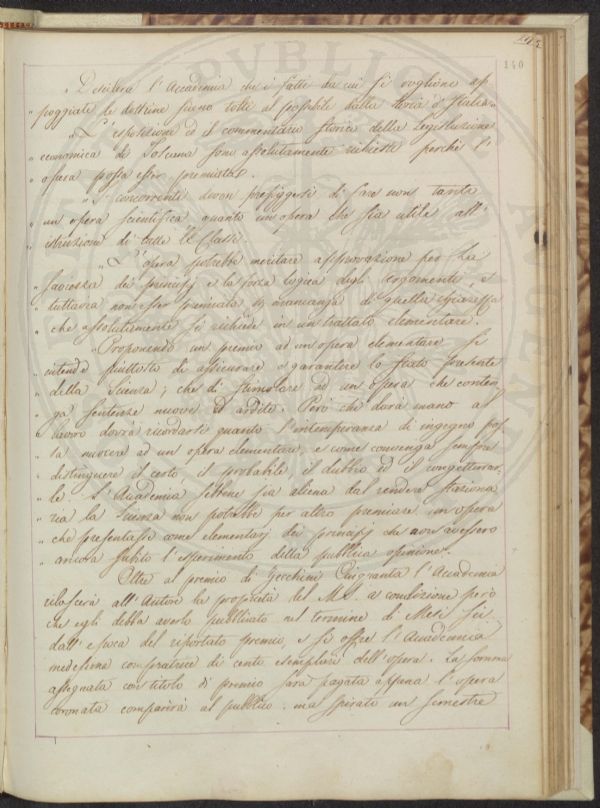 140
„ Desidera l'Accademia che i fatti da cui si vogliono ap
„ poggiate le dottrine siano tolti al possibile dalla storia d'Italia.
„ L'esposizione ed il commentario storico della legislazione
„ economica di Toscana sono assolutamente richiesti perchè l'
„ opera possa esser premiata.
„ I concorrenti devon prefiggersi di fare non tanto
„ un opera scientifica quanto un opera che sia utile all'
„ istruzione di tutte le classi.
„ L'opera potrebbe meritare approvazione per la
„ principj e la forza logica degli argomenti, e
„ tuttavia non esser premiata in mancanza di quella chiarezza
„ che assolutamente si richiede in un trattato elementare.
„ Proponendo un premio ad un opera elementare si
„ intende piuttosto di assicurare o garantire lo stato presente
„ della Scienza, che di stimolare ad un opera che conten
„ ga sentenze nuove ed ardite. Però chi darà mano al
„ lavoro dovrà ricordarsi quanto l'intemperanza di ingegno pos
„ sa nuocere ad un opera elementare, e come convenga sempre
„ distinguere il certo il probabile, il dubbio ed il congetturas
„ le. L'Accademia sebbene sia aliena dal rendere staziona
„ ria la scienza non potrebbe per altro premiare un opera
„ che presentasse come elementarj dei principj che non avessero
„ ancora subito l'esperimento della pubblica opinione.
Oltre al premio di Zecchini Cinquanta l'Accademia
rilascerà all'Autore la proprietà del MS. a condizione però
che egli debba averlo pubblicato nel termine di Mesi Sei
dall'epoca del riportato premio, e si offre l'Accademia
medesima compratrice di cento esemplari dell'opera. La somma
assegnata con titolo di premio sarà pagata appena l'opera
coronata comparirà al pubblico: ma spirato un semestre